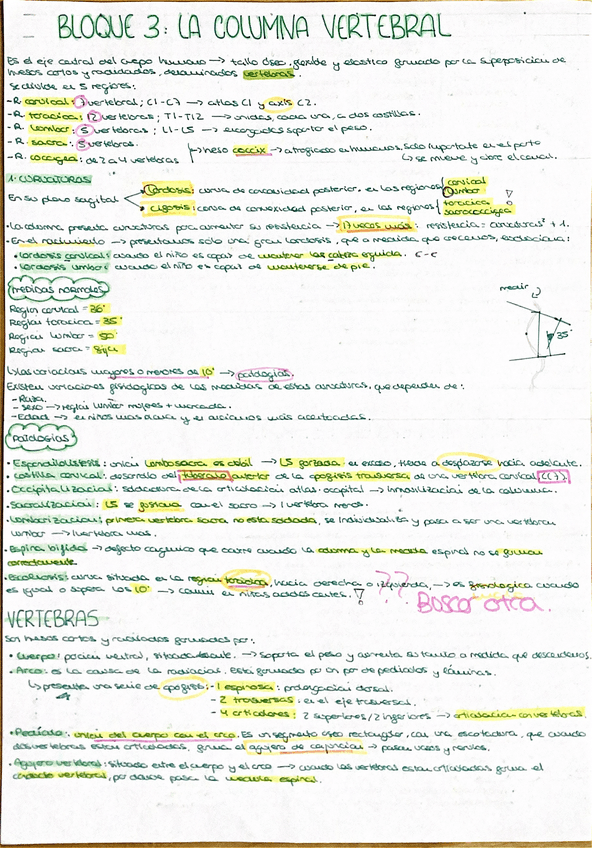 BLOQUE 3: LA COLUMNA VERTEBRAL
Es el eje central del cuerpo humano → tallo óseo, flexible y elástico formado por la superposición de
huesos cortos y radiados, denominados vértebras.
Se divide en 5 regiones:
-R cervical: 7 vertebral; C1-C7 → atlas C1 y axis C2.
-R toracica: 12 vertebras; T1-T12 → unidas, cada una, a dos costillas.
-R lumbar: 5 vertebras; L1-L5 → encargadas soportar el peso.
-R sacra: 5 vertebras.
-R coccigea: de 2 a 4 vertebras → hueso coccix → atrofiado en humanos. Solo importante en el parto
↳ se mueve y abre el canal.
1. CURVATURAS
En su plano sagital
Lordosis: curva de concavidad posterior, en las regiones cervical lumbar
Cifosis: curva de convexidad posterior, en las regiones toracica sacrococcigea
• La columna presenta curvaturas para aumentar su resistencia → 17 veces más: resistencia = curvaturas² + 1.
• En el nacimiento → presentamos solo una gran lordosis, que a medida que crecemos, evoluciona:
• Lordosis cervical: cuando el niño es capaz de mantener la cabeza erguida.
• Lordosis lumbar: cuando el niño es capaz de mantenerse de pie.
medidas normales
medir
Region cervical = 36°
Region toracica = 35°
35°
Region lumbar = 50°
Region sacra =
variaciones mayores o menores de 10° → patologías.
Existen variaciones fisiologicas de las medidas de estas curvaturas, que dependen de:
-Raza.
-Sexo → region lumbar mujeres + marcada.
-Edad → en niños mas suave y en ancianos más acentuadas.
Patologías
• Espondilolistesis: unión lumbosacra es débil → L5 forzada en exceso, tiende a desplazarse hacia adelante.
• Costilla cervical: desarrollo del tubérculo anterior de la apofisis transversa de una vertebra cervical (C7).
• Occipitalizacion: soldadura de la articulación atlas-occipital → inmovilización de la columna.
• Sacralizacion: L5 se fusiona con el sacro → 1 vertebra menos.
• Lumbarizacion: primera vertebra sacra no esta soldada, se individualiza y pasa a ser una vertebra
lumbar → 1 vertebra mas.
• Espina bifida → defecto congenito que ocurre cuando la columna y la medula espinal no se forman
correctamente.
• Escoliosis: curva situada en la region toracica, hacia derecha o izquierda, → es
cuando
es igual o supera los 10° → comun en niñas adolescentes.
??
Busco otra.
VERTEBRAS
Son huesos cortos y radiados formados por:
• Cuerpo: posicion ventral, → soporta el peso y aumenta su tamaño a medida que descendemos.
• Arco: es la causa de la radiacial. Esta formado por un par de pediculos y láminas.
↳ presenta una serie de apofisis: - 1 espinosa: prolongacion dorsal.
- 2 transversas: en el eje transversal.
- 4 articulares: 2 superiores/2 inferiores → articulacion con vertebras.
• Pediculo: unión del cuerpo con el arco. Es un segmento óseo rectangular, con una escotadura, que cuando
dos vertebras estan articuladas, forma el agujero de conjuncion → pasan vasos y nervios.
• Agujero vertebral: situado entre el cuerpo y el arco → cuando las vertebras estan articuladas forma el
conducto vertebral, por donde pasa la medula espinal.